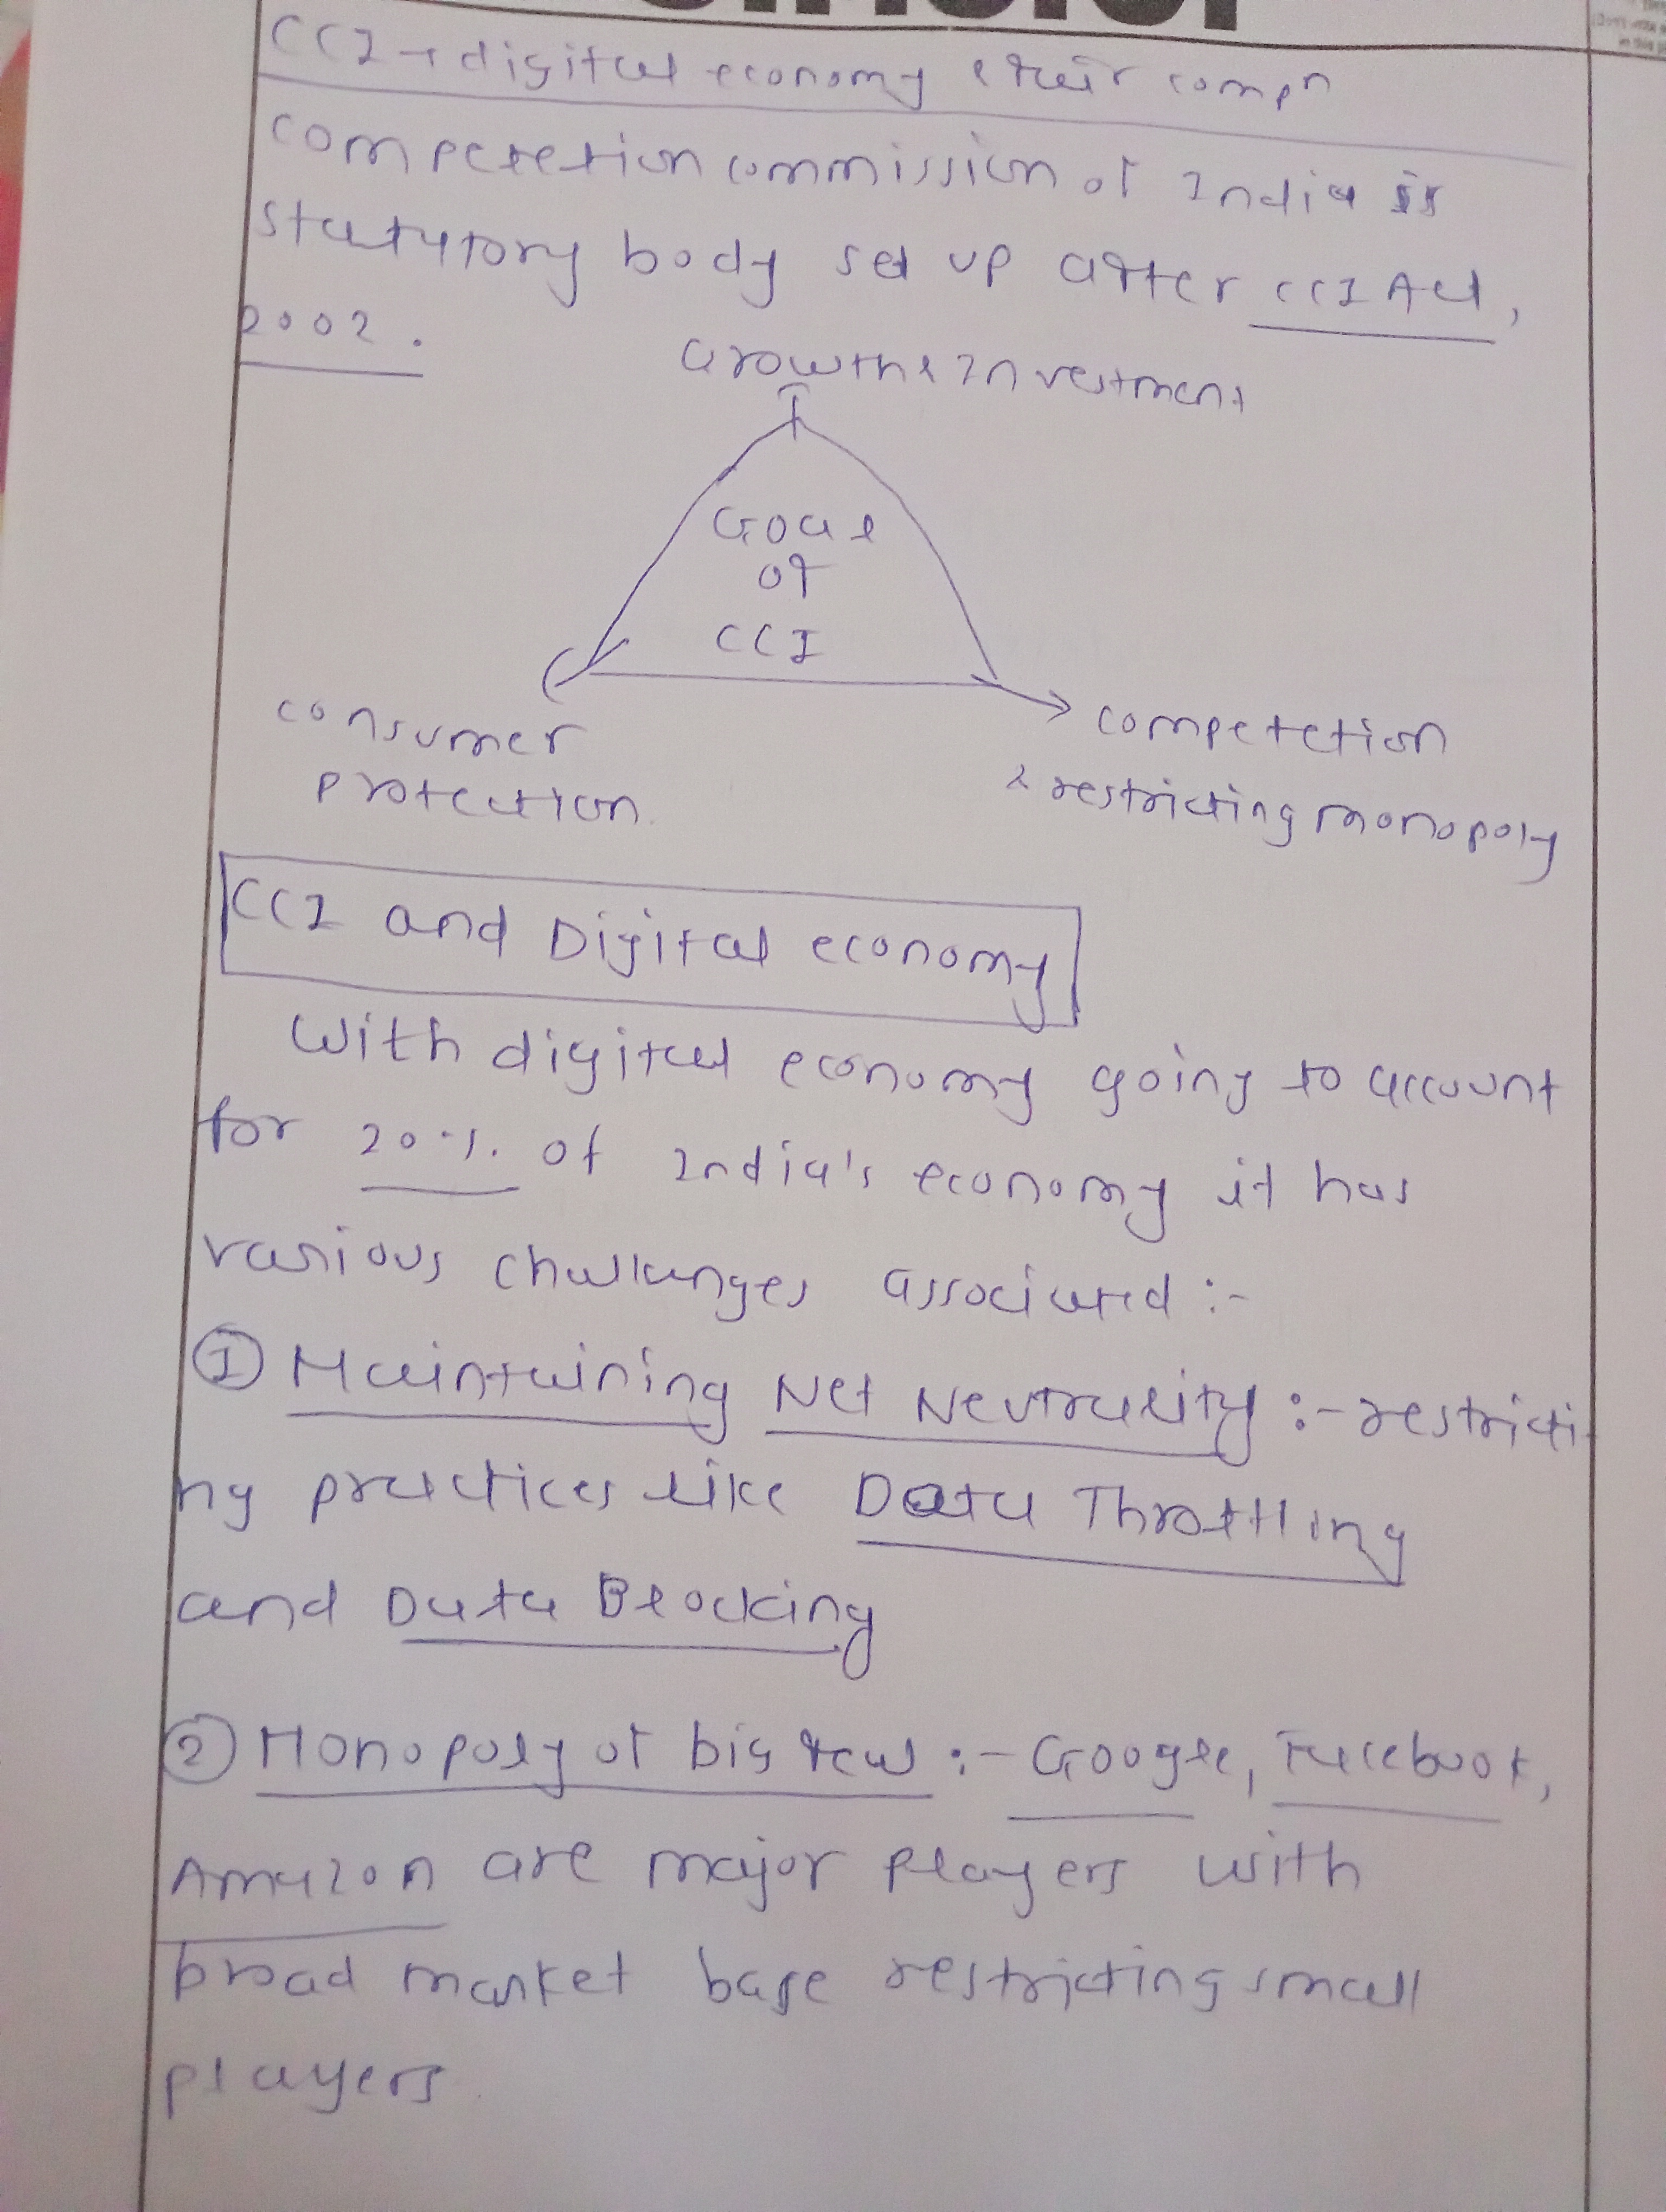 CCI → digital economy & their compn
Competetion commission of India is
statutory body set up after CCI Act,
2002.
Growth & Investment
Goal
of
CCI
consumer
protection
competetion
& restricting monopoly
CCI and Digital economy
With digital economy going to account
for 20% of India's economy it has
various challanges associated :-
① Maintaining Net Neutrality :- restricti
ng practices like Data Throttling
and Data Blocking
② Monopoly of big tech :- Google, Facebook,
Amazon are major players with
broad market base restricting small
players.